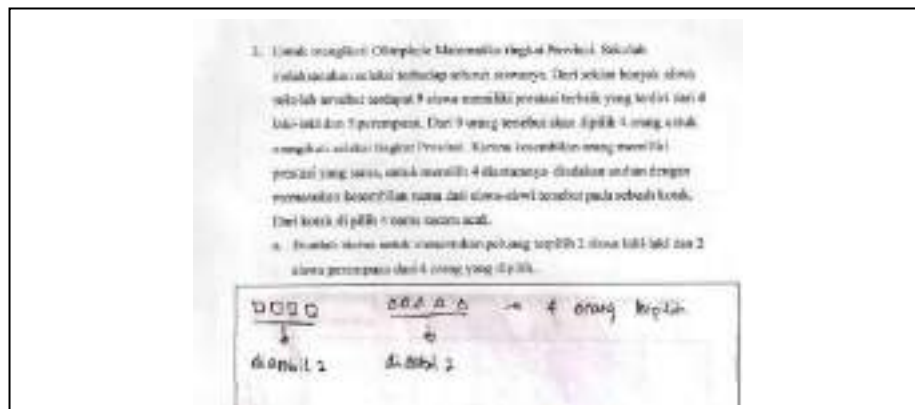 Untuk mengikuti Olimpiade Matematika tingkat Provinsi. Sekolah
melaksanakan seleksi terhadap seluruh siswanya. Dari sekian banyak siswa
sekolah tersebut terdapat 9 siswa memiliki prestasi terbaik yang terdiri dari 4
laki-laki dan 5 perempuan. Dari 9 orang tersebut akan dipilih 4 orang untuk
mengikuti seleksi tingkat Provinsi. Karena kesembilan orang memiliki
prestasi yang sama, untuk memilih 4 diantaranya diadakan undian dengan
memasukan kesembilan nama dari siswa-siswi tersebut pada sebuah kotak.
Dari kotak di pilih 4 nama secara acak.
a. siswa untuk menentukan peluang terpilih 2 siswa laki-laki dan 2
siswa perempuan dari 4 orang yang dipilih.
→ 4 orang terpilih
diambil 2 diambil 2